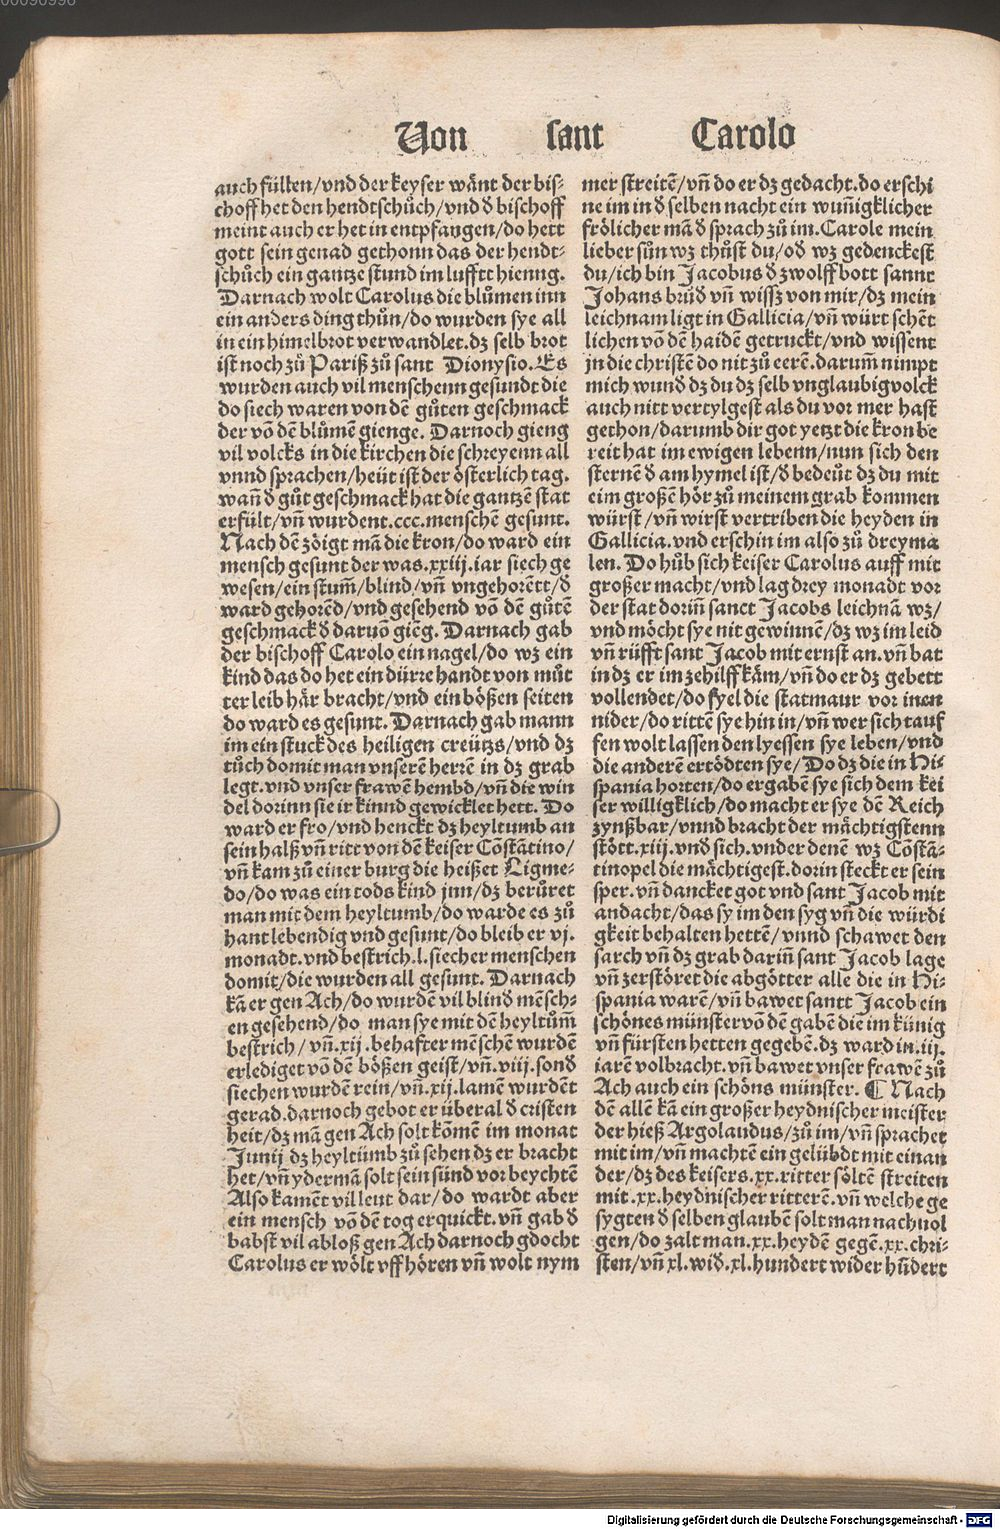 00090996
Von sant Carolo
auch füllen/vnd der keyser wänt der bis-
choff het den hendtschůch/vnd d̕ bischoff
meint auch er het in entpfangen/do hett
gott sein genad gethonn das der hendt-
schůch ein gantze stund im lufftt hienng.
Darnach wolt Carolus die blůmen inn
ein anders ding thůn/do wurden sye all
in ein himelbrot verwandlet.dz selb brot
ist noch zů Pariß zů sant Dionysio.Es
wurden auch vil menschenn gesundt die
do siech waren von dē gůten geschmack
der vō dē blůmē gienge. Darnoch gieng
vil volcks in die kirchen die schreyenn all
vnnd sprachen/heüt ist der österlich tag.
wañ d̕ gůt geschmack hat die gantzē stat
erfült/vñ wurdent.ccc.menschē gesunt.
Nach dē zöigt mā die kron/do ward ein
mensch gesunt der was.xxiij.iar siech ge
wesen/ein stum̃/blind/vñ vngehorētt/d̕
ward gehorēd/vnd gesehend vō dē gůtē
geschmack d̕ daruō giēg. Darnach gab
der bischoff Carolo ein nagel/do wz ein
kind das do het ein dürre handt von můt
ter leib här bracht/vnd ein bößen seiten
do ward es gesunt. Darnach gab mann
im ein stuck des heiligen creützs/vnd dz
tůch domit man vnserē herrē in dz grab
legt.vnd vnser frawē hembd/vñ die win
del dorinn sie ir kinnd gewicklet hett. Do
ward er fro/vnd henckt dz heyltumb an
sein halß vñ ritt von dē keiser Cōstātino/
vñ kam zů einer burg die heißet Ligme-
do/do was ein tods kind jnn/dz berůret
man mit dem heyltumb/do warde es zů
hant lebendig vnd gesunt/do bleib er vj.
monadt.vnd bestrich.l.siecher menschen
domit/die wurden all gesunt. Darnach
kā er gen Ach/do wurdē vil blind̕ mēsch-
en gesehend/do man sye mit dē heyltům̃
bestrich/vñ.xij.behafter mēschē wurdē
erlediget vō dē bößen geist/vñ.viij.sond̕
siechen wurdē rein/vñ.xij.lamē wurdēt
gerad.darnoch gebot er überal d̕ cristen
heit/dz mā gen Ach solt kōmē im monat
Junij dz heyltümb zů sehen dz er bracht
het/vñ ydermā solt sein sünd vor beychtē
Also kamēt vil leut dar/do wardt aber
ein mensch vō dē tog erquickt.vñ gab d̕
babst vil abloß gen Ach darnoch gdocht
Carolus er wölt vff hören vñ wolt nym
mer streitē/vñ do er dz gedacht.do erschi
ne im in d̕ selben nacht ein wuñigklicher
frölicher mā d̕ sprach zů im.Carole mein
lieber sůn wz thůst du/od̕ wz gedenckest
du/ich bin Jacobus d̕ zwolff bott sannt
Johans brůd̕ vñ wissz von mir/dz mein
leichnam ligt in Gallicia/vñ würt schēt
lichen vō dē haidē getruckt/vnd wissent
jn die christē do nit zů eerē.darum̃ nimpt
mich wund̕ dz du dz selb vnglaubig volck
auch nitt vertylgest als du vor mer hast
gethon/darumb dir got yetzt die kron be
reit hat im ewigen lebenn/nun sich den
sternē d̕ am hymel ist/d̕ bedeüt dz du mit
eim großē hör zů meinem grab kommen
würst/vñ wirst vertriben die heyden in
Gallicia.vnd erschin im also zů dreyma
len. Do hůb sich keiser Carolus auff mit
großer macht/vnd lag drey monadt vor
der stat doriñ sanct Jacobs leichnā wz/
vnd möcht sye nit gewinnē/dz wz im leid
vñ rüfft sant Jacob mit ernst an.vñ bat
in dz er im ze hilff kām/vñ do er dz gebett
vollendet/do fyel die statmaur vor inen
nider/do rittē sye hin in/vñ wer sich tauf
fen wolt lassen den lyessen sye leben/vnd
die anderē ertödten sye/Do dz die in Hi-
spania horten/do ergabē sye sich dem kei
ser willigklich/do macht er sye dē Reich
zynßbar/vnnd bracht der mächtigstenn
stött.xiij.vnd sich.vnder denē wz Cōstā-
tinopel die mächtigest.dorin steckt er sein
sper.vñ dancket got vnd sant Jacob mit
andacht/das sy im den syg vñ die würdi
gkeit behalten hettē/vnnd schawet den
sarch vñ dz grab dariñ sant Jacob lage
vñ zerstöret die abgötter alle die in Hi-
spania warē/vñ bawet santt Jacob ein
schönes münster vō dē gabē die im künig
vñ fürsten hetten gegebē.dz ward in.iij.
iarē volbracht.vñ bawet vnser frawē zů
Ach auch ein schöns münster. ¶ Nach
dē allē kā ein großer heydnischer meister
der hieß Argolandus/zů im/vñ sprachet
mit im/vñ machtē ein gelübdt mit einan
der/dz des keisers.xx.ritter söltē streiten
mit.xx.heydnischer ritterē.vñ welche ge
sygten d̕ selben glaubē solt man nachuol
gen/do zalt man.xx.heydē gegē.xx.chri-
sten/vñ xl.wid̕.xl.hundert wider hūdert
Digitalisierung gefördert durch die Deutsche Forschungsgemeinschaft - DFG